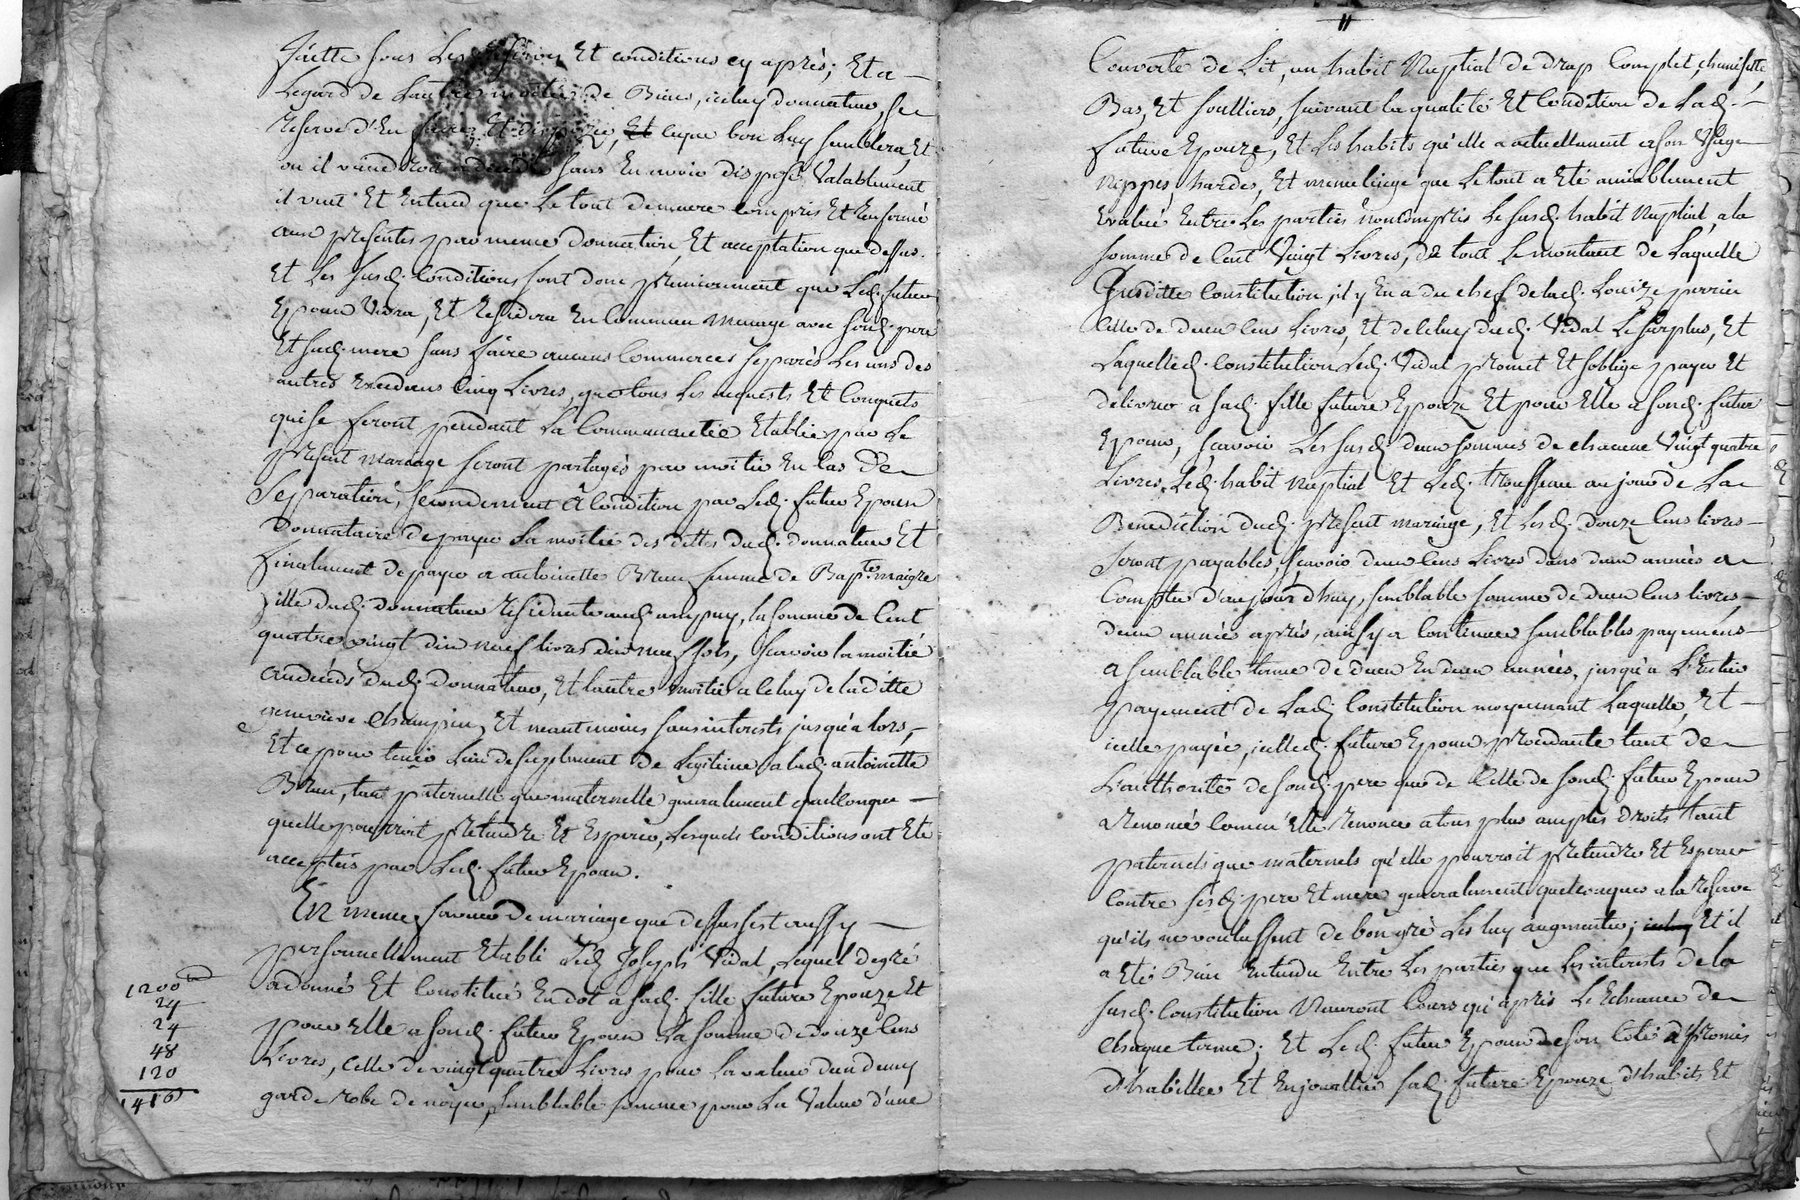 faitte sous Les Et conditions cy après; Et a
Legard de Lautre moitié de Biens, iceluy donnateur, se
reserve d'En faire, Et disposer, Et ceque bon Luy semblera, Et
ou il viendroit a deceder sans En avoir disposé Valablement
il veut Et Entend que Le tout demeure compris Et Renfermé
aux presentes par meme donnation, Et acceptation que dessus.
Et Les susd. Conditions sont donc premierement que Led. futur
Epoux Vivra, Et Residera En Commun menage avec sond. pere
Et sad. mere sans faire aucuns Commerces separés Les uns des
autres Excedans Cinq Livres, que tous Les acquests Et Conquets
qui se feront pendant La Communautée Etablie par Le
present mariage seront partagés par moitié En Cas de
Separation, secondement a Condition par Led. futur Epoux
Donnataire de payer La moitié des dettes dud. donnateur Et
finalment de payer a antoinette Brun femme de Bapte. maigre
fille dud. donnateur residente aud. ampuy, la somme de Cent
quatre vingt dix neuf livres dix neuf sols, scavoir la moitié
au deceds dud. Donnateur, Et lautre moitié a Celuy de laditte
genevieve Champin, Et neantmoins sans interests jusqu'a lors,
Et ce pour tenir Lieu de suplement de Legitime a lad. antoinette
Brun, tant paternelle que maternelle generalement quellonque
quelle pourroit pretendre Et Esperer, Lesquels conditions ont Eté
acceptées par Led. futur Epoux.
En meme faveur de mariage que dessus s'est aussy
personnellement Etabli Led. Joseph Vidal, Lequel de gré
a donné Et Constitué En dot a sad. fille future Epouze Et
pour Elle a sond. futur Epoux La somme de douze Cens
Livres, Celle de vingt quatre Livres pour La valeur d'un demy
garde robe de noyer, semblable somme pour La Valeur d'une
1200
24
24
48
120
1416
Couverte de Lit, un habit Nuptial de drap Complet, chemisette
Bas, Et soulliers, suivant la qualité Et Condition de Lad.
future Epouze, Et Les habits qu'elle a actuellement a son Usage
Nippes hardes, Et menu linge que Le tout a Eté amiablement
Evalué Entre Les parties non compris Le susd. habit Nuptial, a la
somme de Cent Vingt Livres, de tout Le montant de Laquelle
susditte Constitution, il y En a du chef de lad. Louize perrier
Celle de deux Cens Livres, Et de Celuy dud. Vidal Le surplus, Et
Laquelle d. Constitution Led. Vidal promet Et s'oblige payer Et
delivrer a sad. fille future Epouze Et pour Elle a sond. futur
Epoux, scavoir Les susd. deux sommes de chacune Vingt quatre
Livres, Led. habit Nuptial Et Led. trousseau au jour de La
Benediction dud. present mariage, Et Lesd. douze Cens livres
seront payables, scavoir deux Cens Livres dans deux années a
Compter d'aujourd'huy, semblable somme de deux Cens livres
deux années après, ainsy a Continuer semblables payemens
a semblable terme de deux En deux années, jusqu'a L'Entier
payement de Lad. Constitution moyennant Laquelle, Et
icelle payée, icelle d. future Epouze procedante tant de
L'authorité de sond. pere que de Celle de sond. futur Epoux
a Renoncé Comme Elle Renonce a tous plus amples droits tant
paternels que maternels qu'elle pourroit pretendre Et Esperer
Contre sesd. pere Et mere generalement quelconques a la reserve
qu'ils ne voulussent de bon gré Les luy augmenter; Et il
a Eté Bien Entendu Entre Les parties que Les interests de la
susd. Constitution N'auront Cours qu'après L'Echeance de
chaque terme; Et Led. futur Epoux de son Coté a promis
d'habiller Et Enjoualler sad. future Epouze d'habits Et